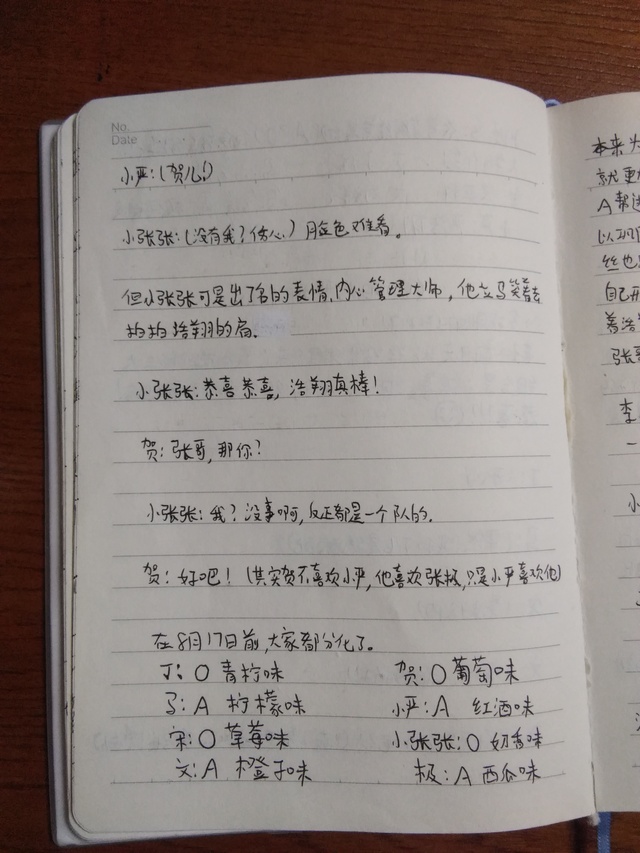 No.
Date
小严:(贺儿!)
小张张:(没有我?伤心)脸色难看。
但小张张可是出了名的表情、内心管理大师,他立马笑着去
拍拍浩翔的肩。
小张张:恭喜恭喜,浩翔真棒!
贺:张哥,那你?
小张张:我?没事啊,反正都是一个队的。
贺:好吧!(其实贺不喜欢小严,他喜欢张极,只是小严喜欢他)
在8月17日前,大家都分化了。
丁:O 青柠味 贺:O 葡萄味
马:A 柠檬味 小严:A 红酒味
宋:O 草莓味 小张张:O 奶香味
文:A 橙子味 极:A 西瓜味
本来
就更
A帮
以
丝也
自己
善浩
张哥
李
一
小